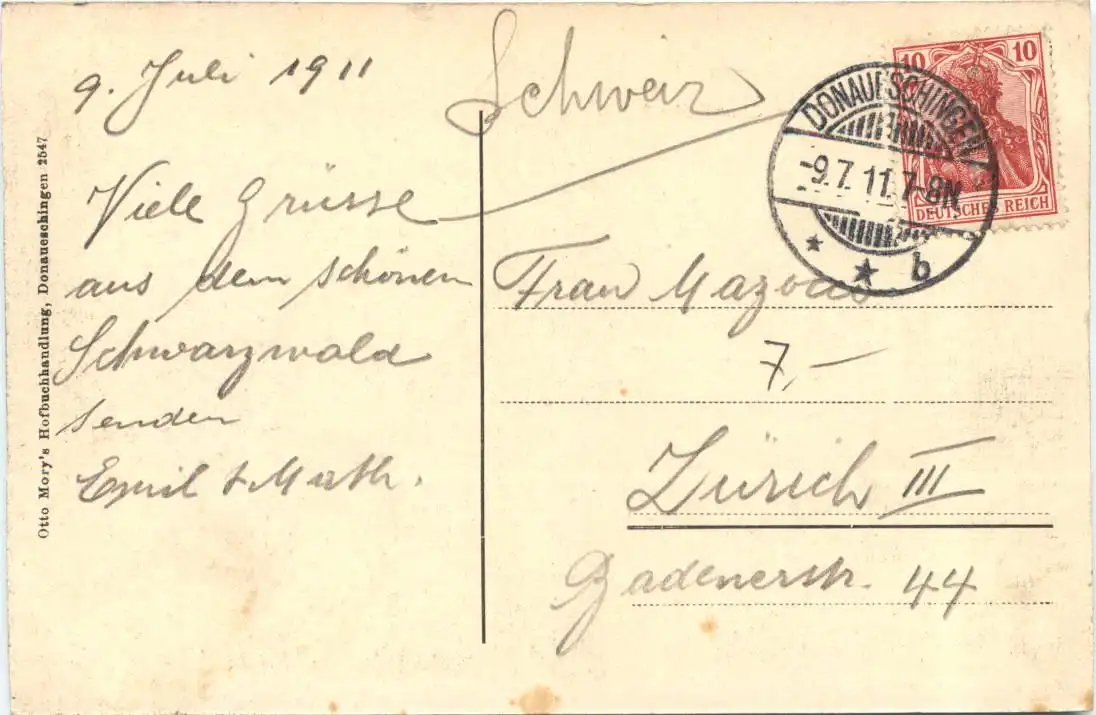 9. Juli 1911
Viele Grüsse
aus dem schönen
Schwarzwald
senden
Emil & Math.
Otto Mory's Hofbuchhandlung, Donaueschingen 2547
Schweiz
10 10
DEUTSCHES REICH
DONAUESCHINGEN
-9.7.11.7-8N
* * b
Frau
7,-
Zürich III
Badenerstr. 44